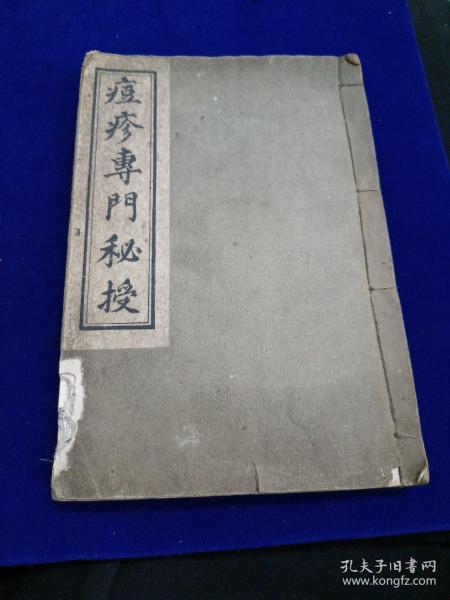 痘疹專門秘授
孔夫子旧书网
www.kongfz.com